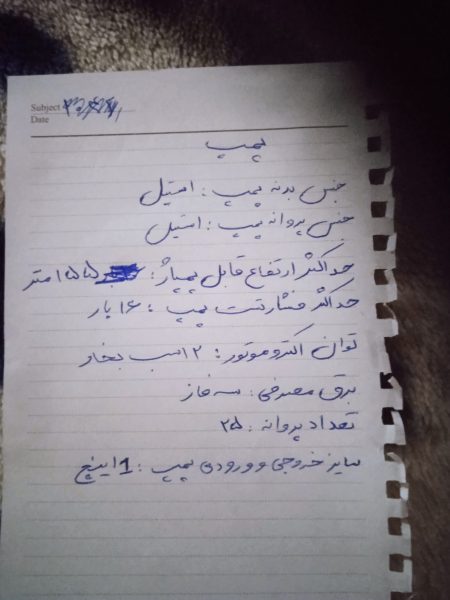 Subject
Date
پمپ
جنس بدنه پمپ : استیل
جنس پروانه پمپ : استیل
حداکثر ارتفاع قابل پمپاژ : ۱۵۵ متر
حداکثر فشار تست پمپ : ۱۶ بار
توان الکتروموتور : ۲ اسب بخار
برق مصرفی : سه فاز
تعداد پروانه : ۲۵
سایز خروجی و ورودی پمپ : 1 اینچ